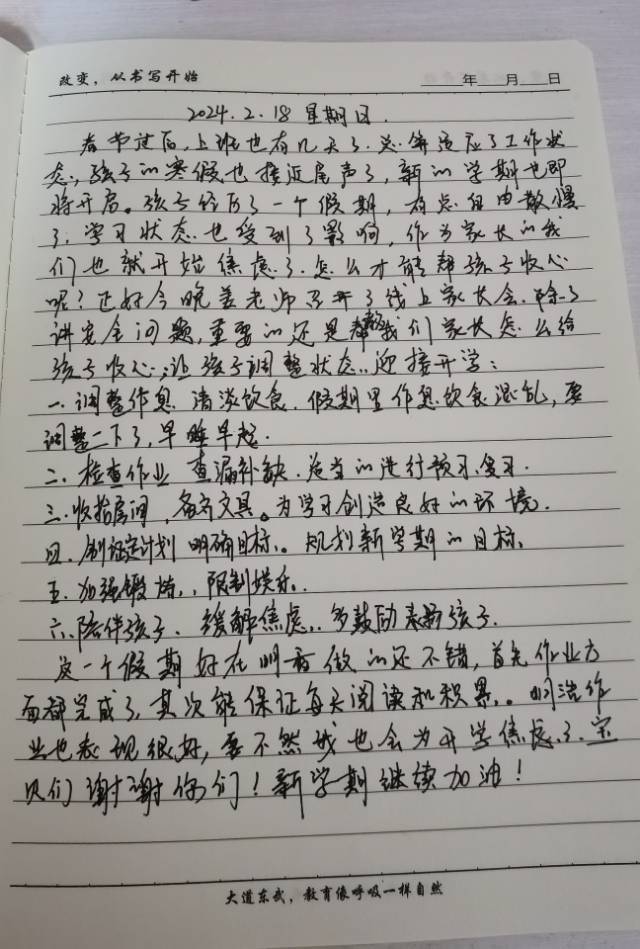 改变，从书写开始
年 月 日
2024.2.18 星期日.
春节过后,上班也有几天了.总算适应了工作状
态.,孩子的寒假也接近尾声了,新的学期也即
将开启。孩子经历了一个假期,有点自由散慢
了.学习状态也受到了影响,作为家长的我
们也就开始焦虑了.怎么才能帮孩子收心
呢?正好今晚姜老师召开了线上家长会.除了
讲安全问题,重要的还是教我们家长怎么给
孩子收心,让孩子调整状态.迎接开学:
一.调整作息 清淡饮食.假期里作息饮食混乱,要
调整一下了,早睡早起.
二.检查作业 查漏补缺.适当的进行预习.复习.
三.收拾房间,备齐文具。为学习创造良好的环境.
四.制定计划 明确目标.规划新学期的目标.
五.加强锻炼.限制娱乐.
六.陪伴孩子.缓解焦虑.多鼓励表扬孩子.
这一个假期好在明春做的还不错,首先作业方
面都完成了,其次能保证每天阅读和积累.明浩作
业也表现很好,要不然我也会为开学焦虑了.宝
贝们谢谢你们!新学期继续加油!
大道东武，教育像呼吸一样自然